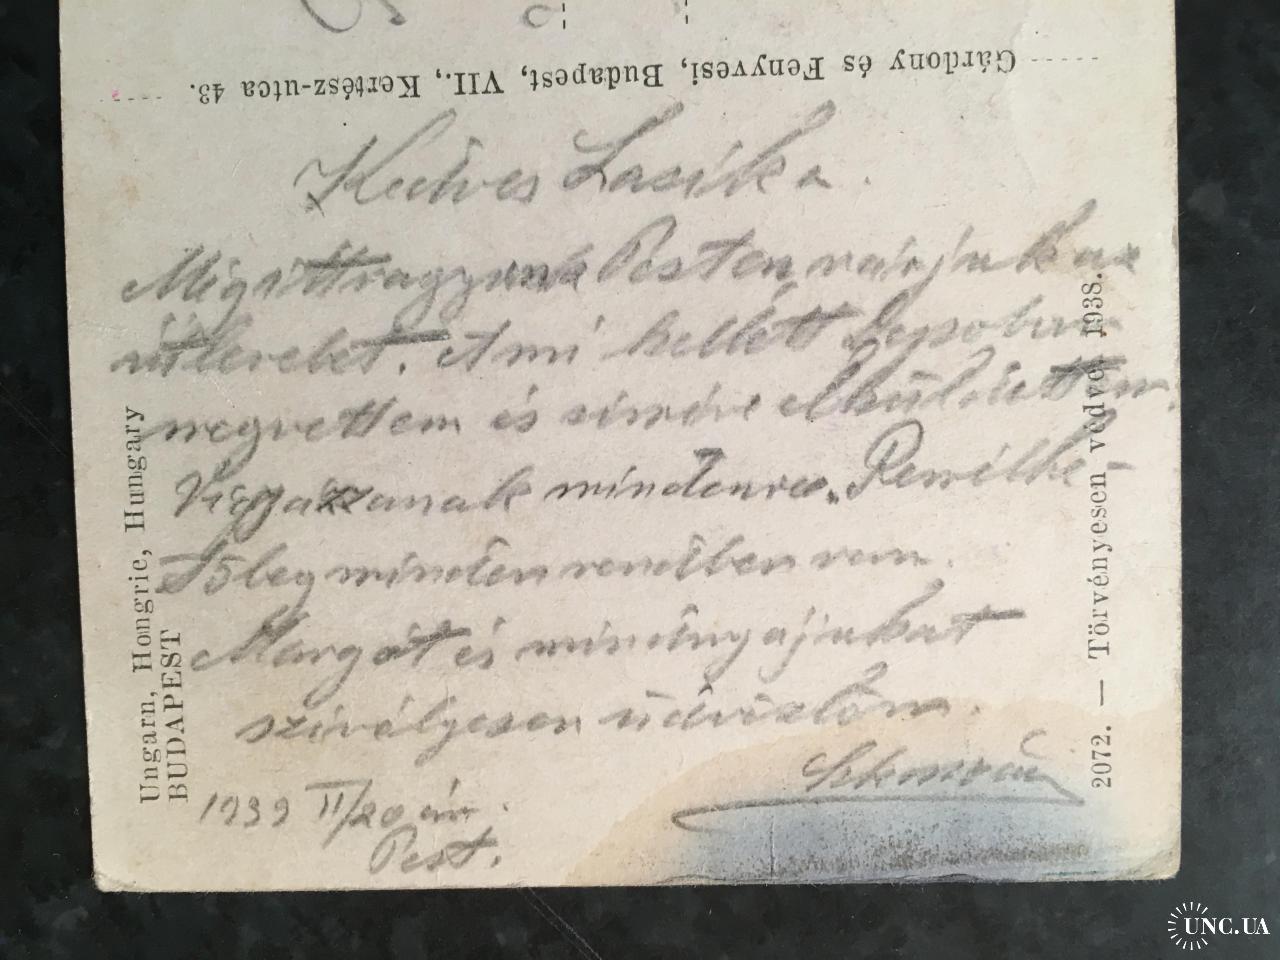 Gárdony és Fenyvesi, Budapest, VII., Kertész-utca 43.
Kedves Lacika.
Mig itt vagyunk Pesten várjuk az
útlevelet. Ami kellett
megvettem és címére elküldettem.
Vigyázzanak mindenre. Remélhe-
tőleg minden rendben van.
Margót és mindnyájukat
szívélyesen üdvözlöm.
1939 II/20 án.
Pest.
Ungarn, Hongrie, Hungary
BUDAPEST
2072. — Törvényesen védve. 1938.
UNC.UA